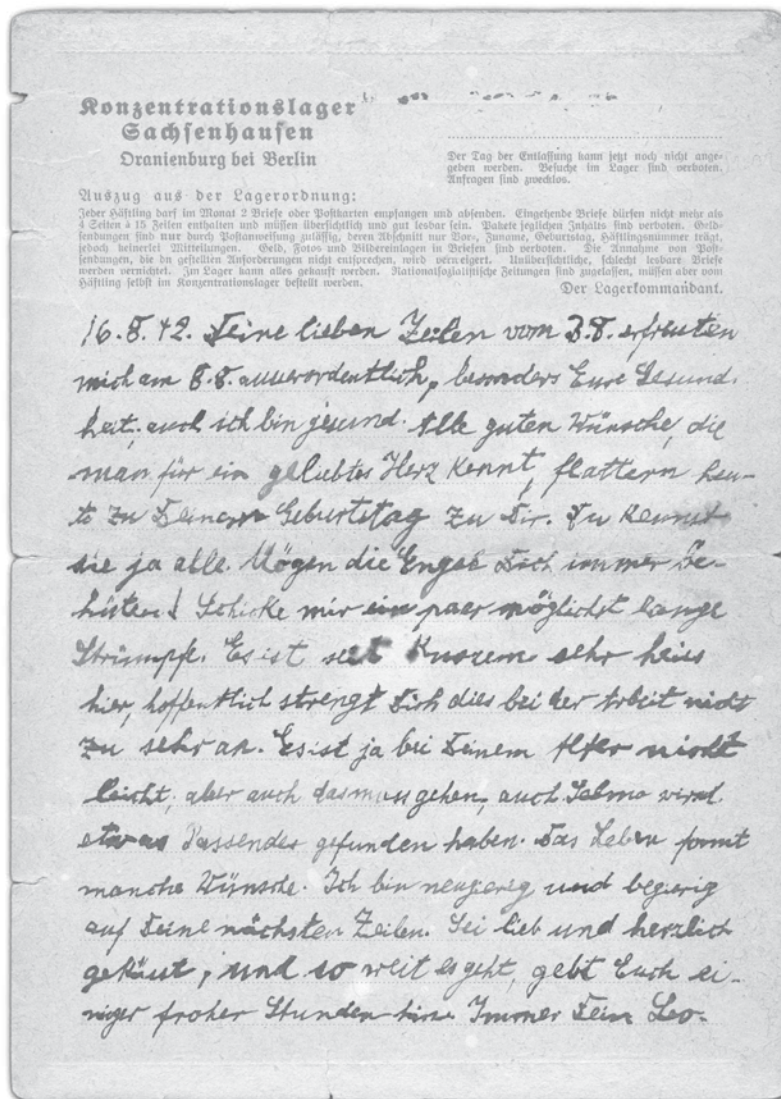 Konzentrationslager
Sachsenhausen
Oranienburg bei Berlin
Der Tag der Entlassung kann jetzt noch nicht ange-
geben werden. Besuche im Lager sind verboten.
Anfragen sind zwecklos.
Auszug aus der Lagerordnung:
Jeder Häftling darf im Monat 2 Briefe oder Postkarten empfangen und absenden. Eingehende Briefe dürfen nicht mehr als
4 Seiten à 15 Zeilen enthalten und müssen übersichtlich und gut lesbar sein. Pakete jeglichen Inhalts sind verboten. Geld-
sendungen sind nur durch Postanweisung zulässig, deren Abschnitt nur Vor-, Zuname, Geburtstag, Häftlingsnummer trägt,
jedoch keinerlei Mitteilungen. Geld, Fotos und Bildereinlagen in Briefen sind verboten. Die Annahme von Post-
sendungen, die den gestellten Anforderungen nicht entsprechen, wird verweigert. Unübersichtliche, schlecht lesbare Briefe
werden vernichtet. Im Lager kann alles gekauft werden. Nationalsozialistische Zeitungen sind zugelassen, müssen aber vom
Häftling selbst im Konzentrationslager bestellt werden.
Der Lagerkommandant.
16.8.42. Deine lieben Zeilen vom 3.8. erfreuten
mich am 8.8. ausserordentlich, besonders Eure Gesund-
heit, auch ich bin gesund. Alle guten Wünsche, die
man für ein geliebtes Herz kennt, flattern heu-
te zu Deinem Geburtstag zu Dir. Du kennst
sie ja alle. Mögen die Engel Dich immer be-
hüten! Schicke mir ein paar möglichst lange
Strümpfe. Es ist seit Kurzem sehr heiss
hier, hoffentlich strengt Dich dies bei der Arbeit nicht
zu sehr an. Es ist ja bei Deinem Alter nicht
leicht, aber auch das muss gehen, auch Selma wird
etwas Passendes gefunden haben. Das Leben formt
manche Wünsche. Ich bin neugierig und begierig
auf Deine nächsten Zeilen. Sei lieb und herzlich
geküsst, und so weit es geht, gebt Euch ei-
niger froher Stunden hin. Immer Dein Leo.